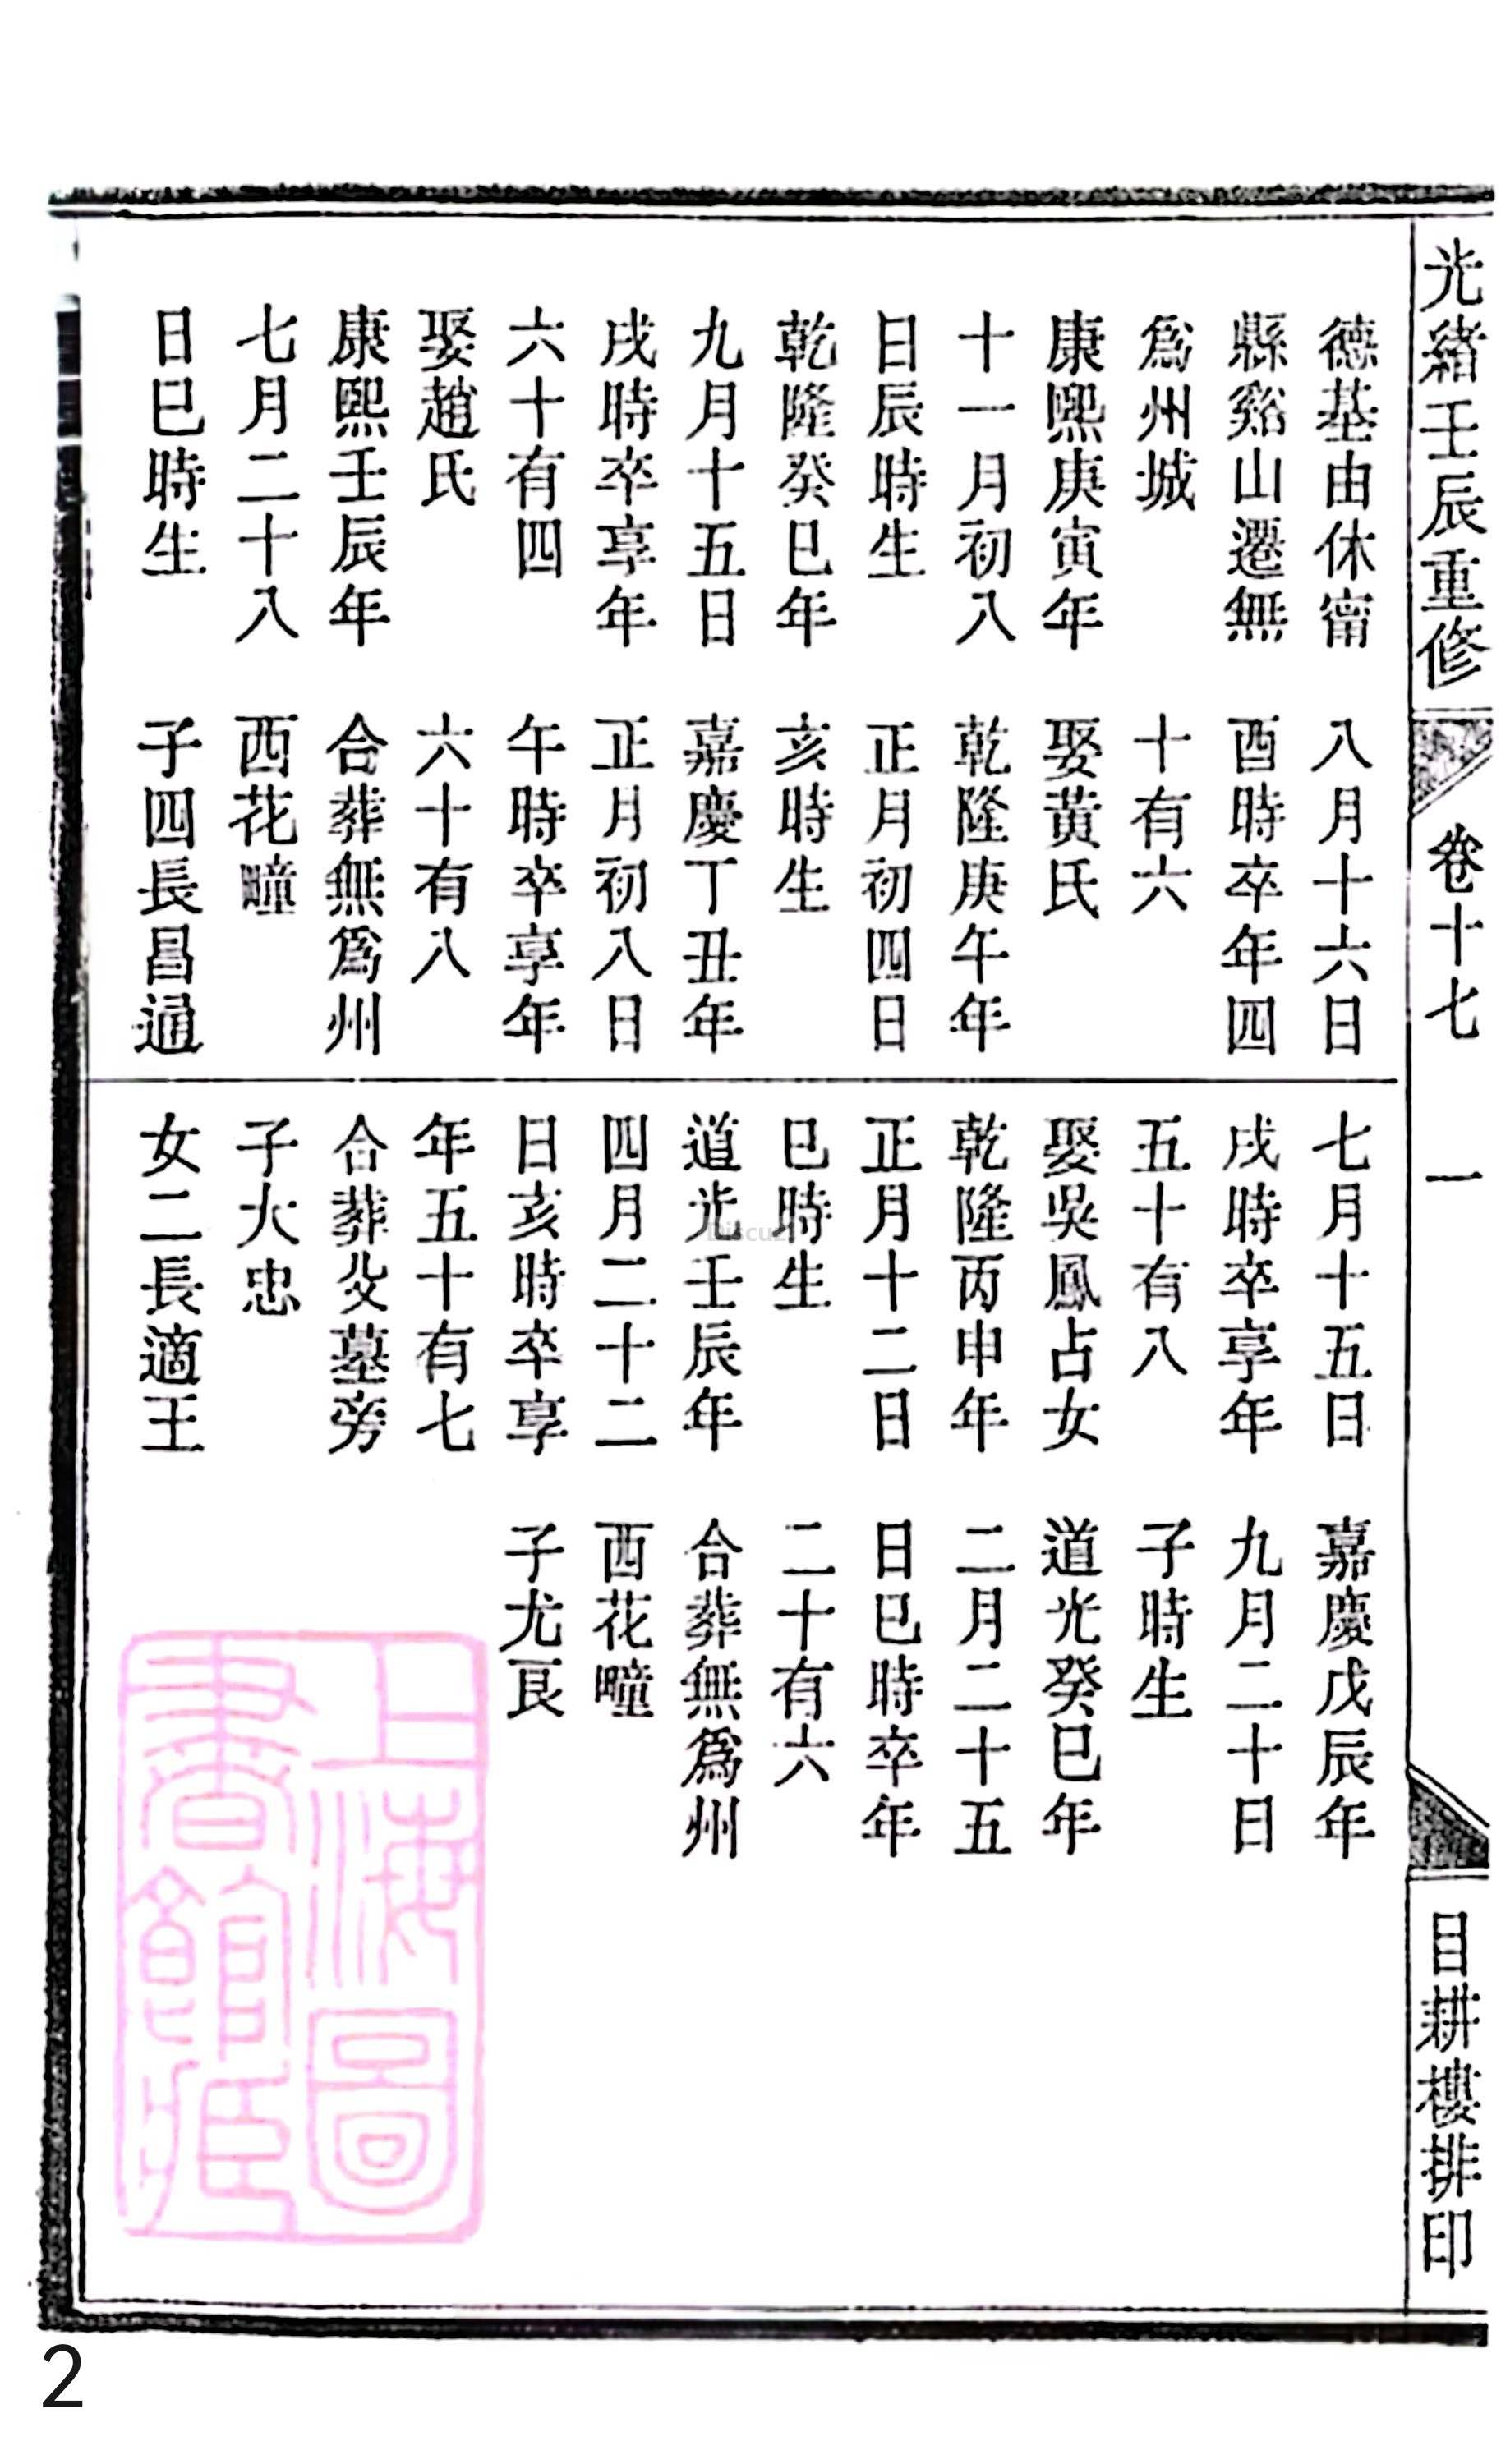 光緒壬辰重修
卷十七
一
目耕樓排印
德基由休甯
縣谿山遷無
爲州城
康熙庚寅年
十一月初八
日辰時生
乾隆癸巳年
九月十五日
戌時卒享年
六十有四
娶趙氏
康熙壬辰年
七月二十八
日巳時生
八月十六日
酉時卒年四
十有六
娶黃氏
乾隆庚午年
正月初四日
亥時生
嘉慶丁丑年
正月初八日
午時卒享年
六十有八
合葬無爲州
西花疃
子四長昌通
七月十五日
戌時卒享年
五十有八
娶吳鳳占女
乾隆丙申年
正月十二日
巳時生
道光壬辰年
四月二十二
日亥時卒享
年五十有七
合葬父墓旁
子大忠
女二長適王
嘉慶戊辰年
九月二十日
子時生
道光癸巳年
二月二十五
日巳時卒年
二十有六
合葬無爲州
西花疃
子尤艮
上海圖
書館藏
Discuz
2